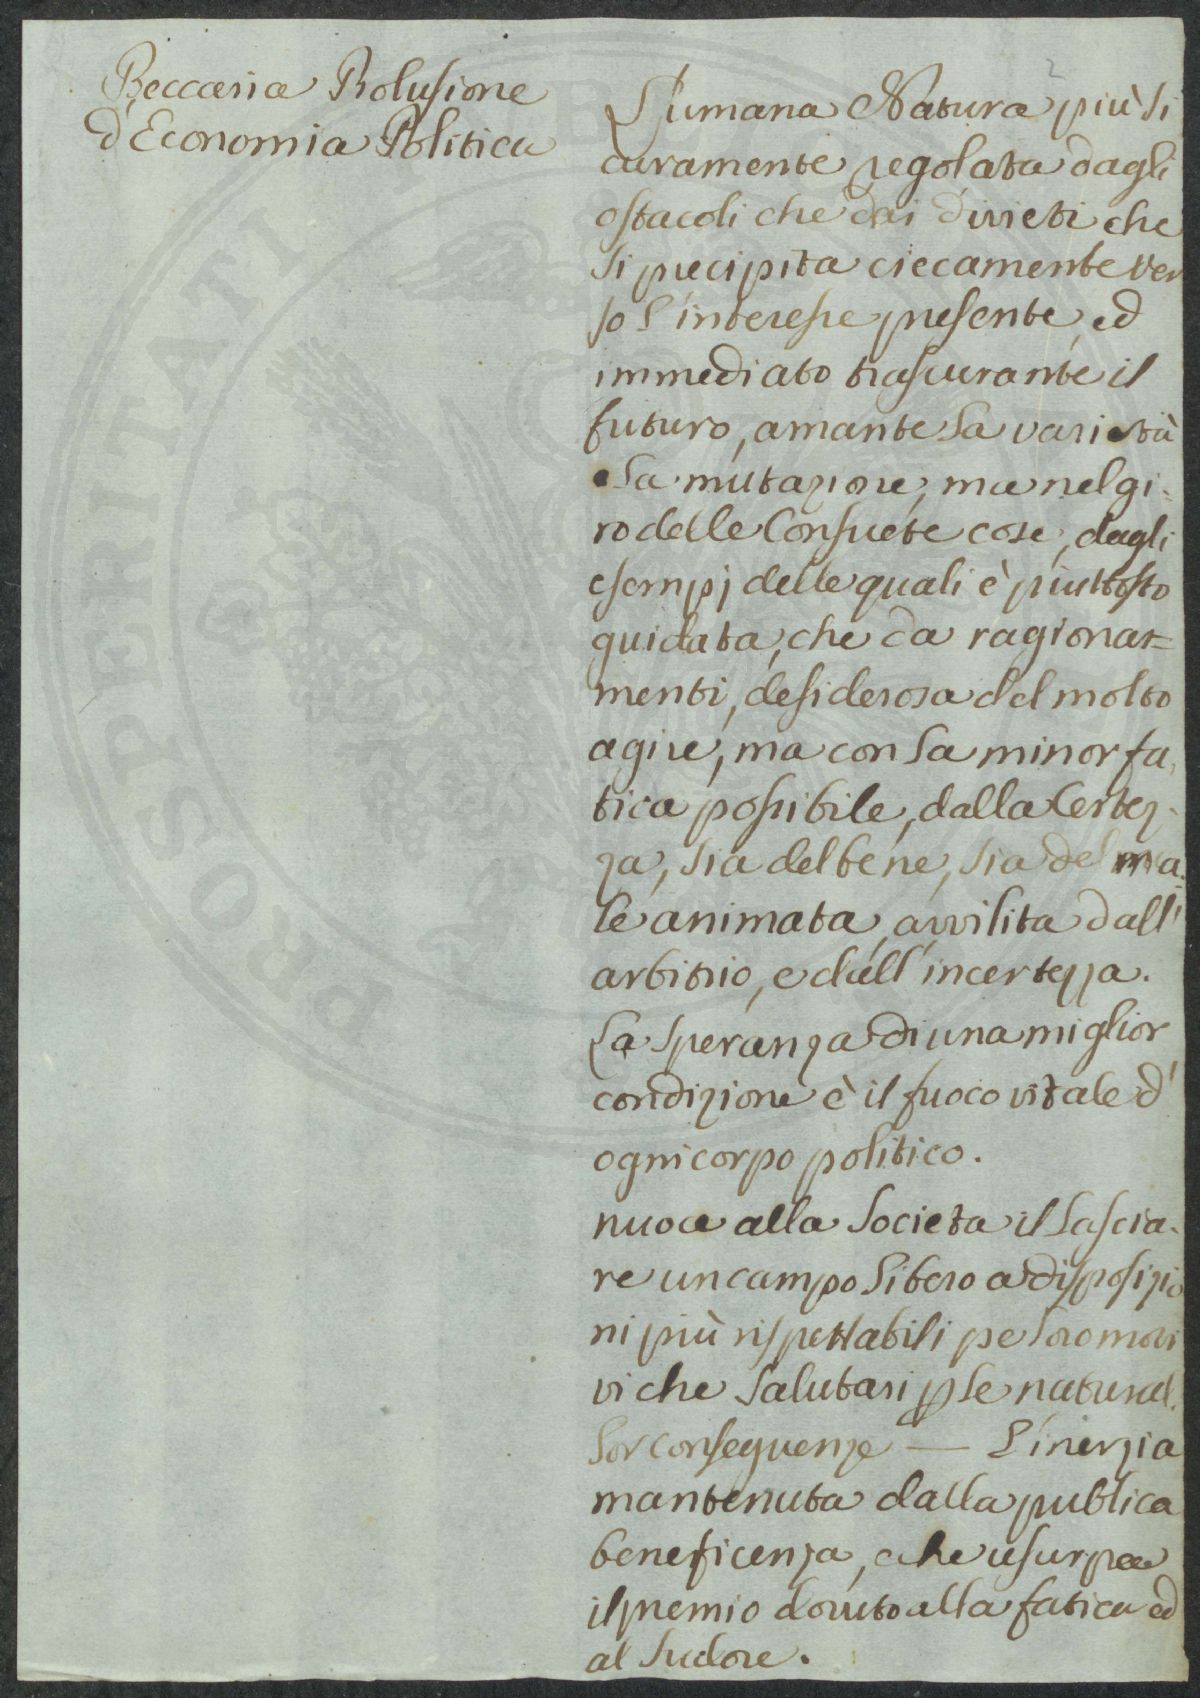 Beccaria Prolusione
d'Economia Politica
2
L'umana Natura più si
curamente regolata dagli
ostacoli che dai divieti che
si precipita ciecamente ver
so l'interesse presente, ed
immediato trascurante il
futuro, amante la varietà
e la mutazione, ma nel gi-
ro delle Consuete cose, dagli
esempj delle quali è piuttosto
guidata, che da ragiona=
menti, desiderosa del molto
agire, ma con la minor fa,
tica possibile, dalla Certez-
za, sia del bene, sia del ma-
le animata, avvilita dall'
arbitrio, e dall'incertezza.
La speranza di una miglior
condizione è il fuoco vitale d'
ogni corpo politico.
nuoce alla Società il lascia-
re un campo libero a disposizio
ni più rispettabili pe loro moti
vi che salutari ꝑ le natural.
lor conseguenze — L'inerzia
mantenuta dalla publica
beneficenza, che usurpa
il premio dovuto alla fatica ed
al sudore.
PROSPERITATI